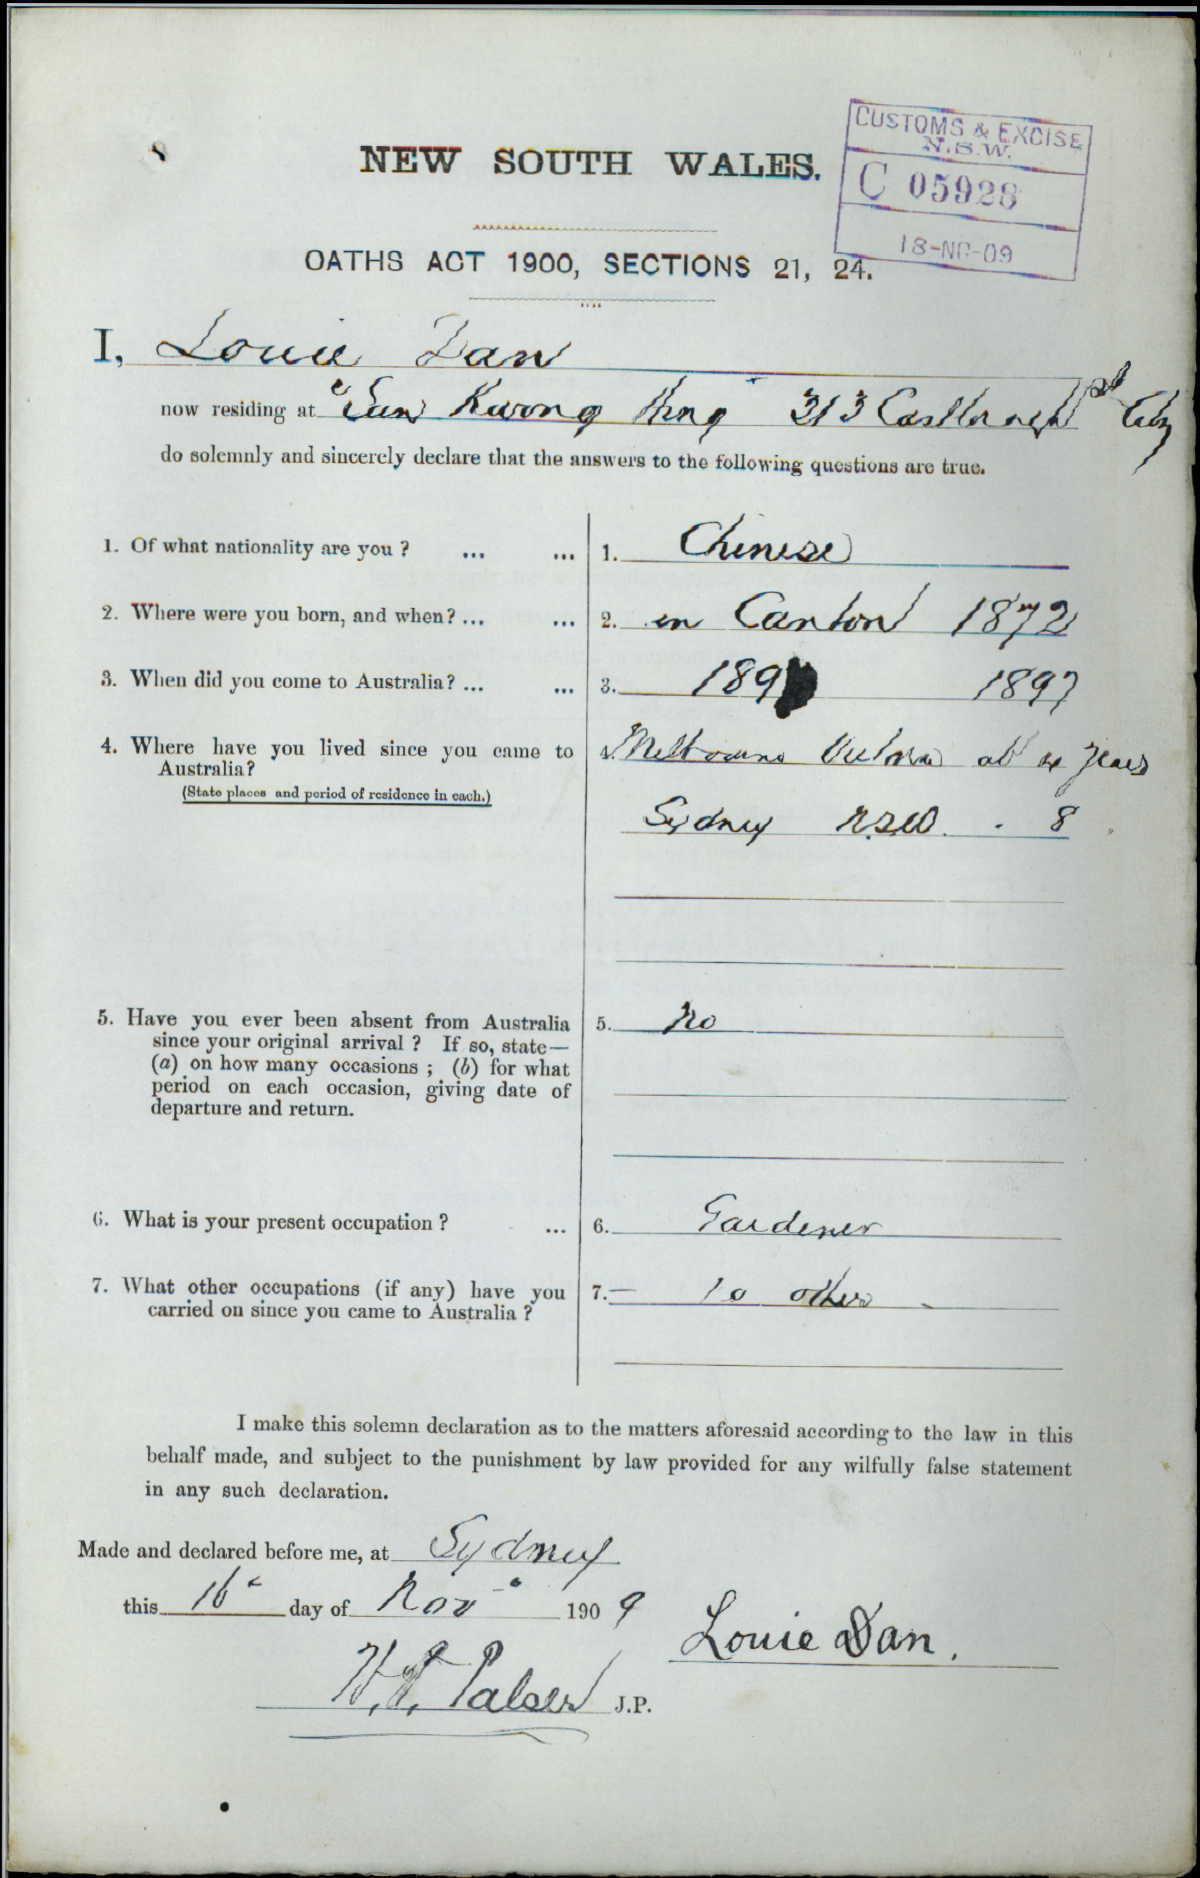 CUSTOMS & EXCISE
N.S.W.
C 05928
18-NO-09
NEW SOUTH WALES.
OATHS ACT 1900, SECTIONS 21, 24.
I, Louie Dan
now residing at Sun Kwong Hing 313 Castlereagh St City
do solemnly and sincerely declare that the answers to the following questions are true.
1. Of what nationality are you ? ... ... 1. Chinese
2. Where were you born, and when ? ... ... 2. in Canton 1872
3. When did you come to Australia ? ... ... 3. 189 1897
4. Where have you lived since you came to 4. Melbourne Victoria abt 4 years
Australia?
(State places and period of residence in each.)
Sydney NSW. 8
5. Have you ever been absent from Australia 5. No
since your original arrival ? If so, state—
(a) on how many occasions ; (b) for what
period on each occasion, giving date of
departure and return.
6. What is your present occupation ? ... 6. Gardener
7. What other occupations (if any) have you 7. — other
carried on since you came to Australia ?
I make this solemn declaration as to the matters aforesaid according to the law in this
behalf made, and subject to the punishment by law provided for any wilfully false statement
in any such declaration.
Made and declared before me, at Sydney
this 16 day of Nov 1909
Louie Dan.
J.P.